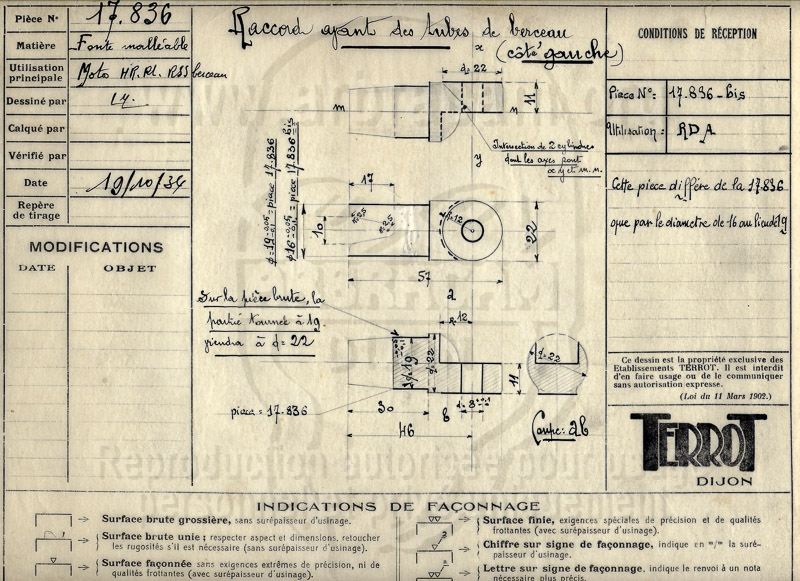 Pièce N° 17.836
Matière Fonte malléable
Utilisation principale Moto HR. RL. RSS berceau
Dessiné par
Calqué par
Vérifié par
Date 19/10/34
Repère de tirage
MODIFICATIONS
DATE OBJET
Raccord ayant des tubes de berceau
(côté gauche)
x
d=22
m n
11
Intersection de 2 cylindres
dont les axes sont
xy et m.n.
y
17
10
R=12
22
57
2
Sur la pièce brute, la
partie tournée à 19
viendra à d=22
R.12
d=22
d=22
11
pièce = 17.836
30
6
46
Coupe: ab
CONDITIONS DE RÉCEPTION
Pièce N°: 17.836-bis
Utilisation: RDA
Cette pièce diffère de la 17.836
que par le diamètre de 16 au lieu de 19
Ce dessin est la propriété exclusive des
Etablissements TERROT. Il est interdit
d'en faire usage ou de le communiquer
sans autorisation expresse.
(Loi du 11 Mars 1902.)
TERROT
DIJON
INDICATIONS DE FAÇONNAGE
Surface brute grossière, sans surépaisseur d'usinage.
Surface brute unie; respecter aspect et dimensions, retoucher
les rugosités s'il est nécessaire (sans surépaisseur d'usinage).
Surface façonnée sans exigences extrêmes de précision, ni de
qualités frottantes (avec surépaisseur d'usinage).
Surface finie, exigences spéciales de précision et de qualités
frottantes (avec surépaisseur d'usinage).
Chiffre sur signe de façonnage, indique en m/m la surépaisseur d'usinage.
Lettre sur signe de façonnage, indique le renvoi à un nota
nécessaire plus précis.